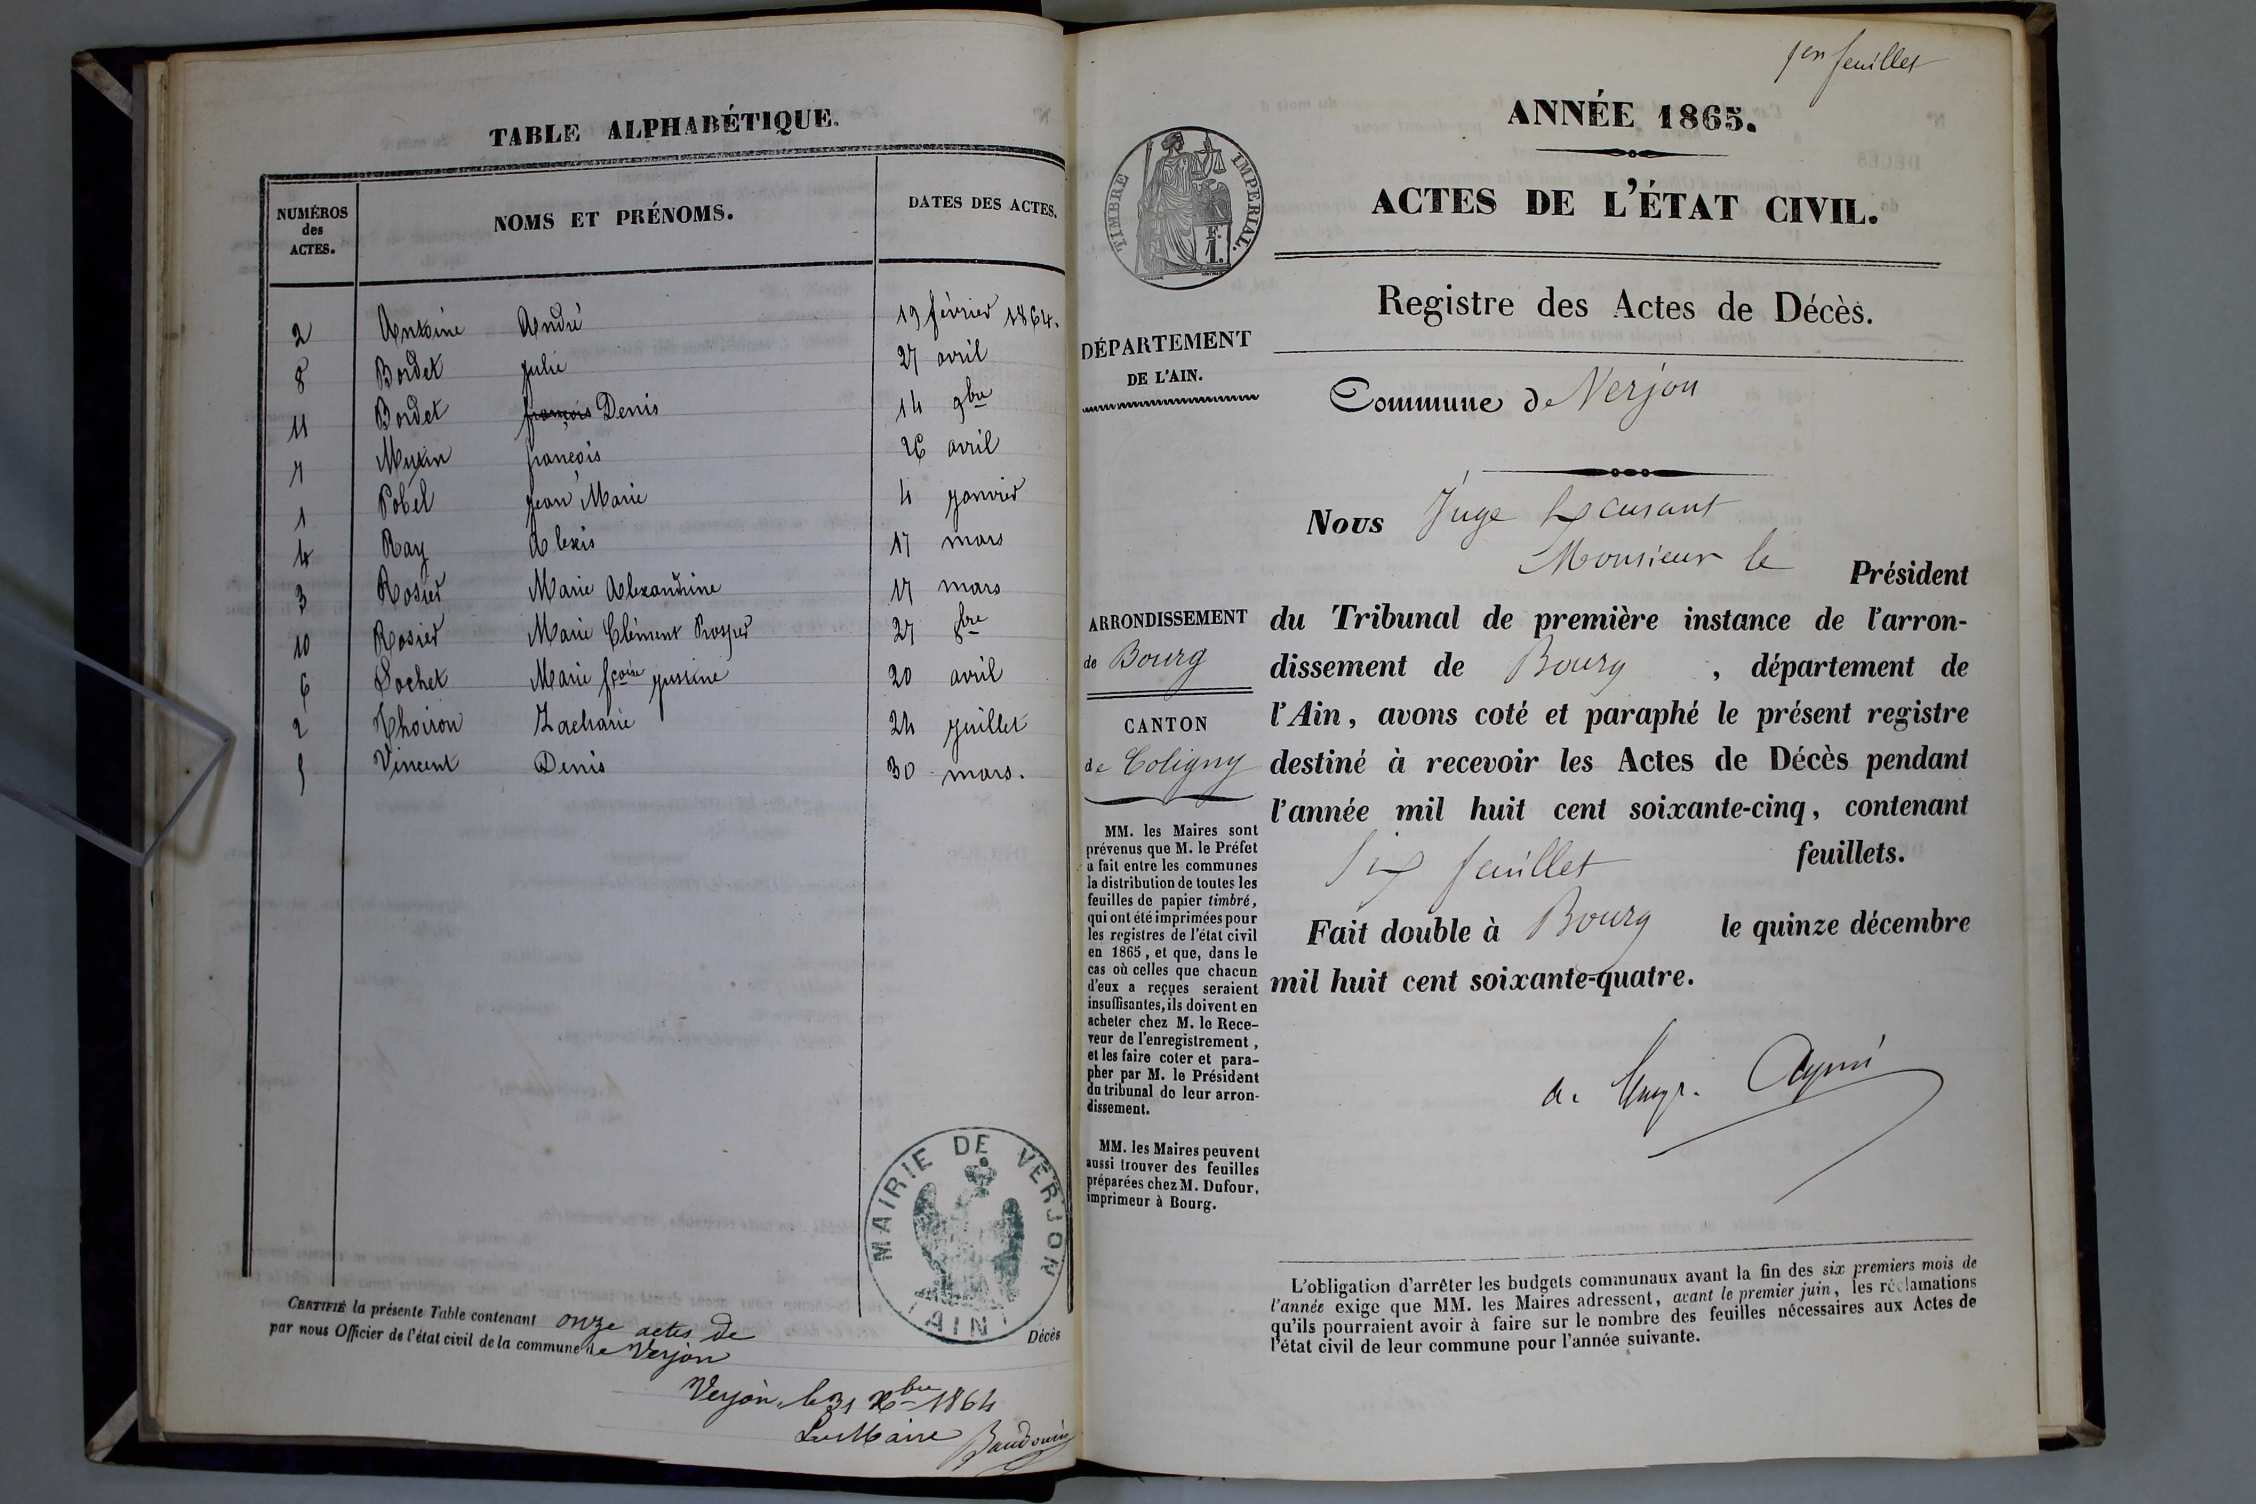 TABLE ALPHABÉTIQUE.
NUMÉROS des ACTES.
NOMS ET PRÉNOMS.
DATES DES ACTES.
2 Antoine André 19 février 1864.
8 Bordet Julie 27 avril
11 Bordet françois Denis 14 9bre
7 François 26 avril
1 Pobel Jean Marie 4 janvier
4 Ray Alexis 17 mars
3 Rosier Marie Alexandrine 17 mars
10 Rosier Marie Clément Prosper 27 8bre
6 Sochet Marie fçoise justine 20 avril
2 Thoiron Zacharie 24 juillet
5 Vincent Denis 30 mars.
MAIRIE DE VERJON
(AIN)
CERTIFIÉ la présente Table contenant onze actes de Décès
par nous Officier de l'état civil de la commune de Verjon
Verjon, le 31 Xbre 1864
Le Maire
Baudouin
1er feuillet
ANNÉE 1865.
ACTES DE L'ÉTAT CIVIL.
TIMBRE IMPERIAL.
F.
1.
Registre des Actes de Décès.
DÉPARTEMENT
DE L'AIN.
Commune de Verjon
Nous Juge
Monsieur le Président
du Tribunal de première instance de l'arron-
dissement de Bourg, département de
l'Ain, avons coté et paraphé le présent registre
destiné à recevoir les Actes de Décès pendant
l'année mil huit cent soixante-cinq, contenant
Six feuillet feuillets.
Fait double à Bourg le quinze décembre
mil huit cent soixante-quatre.
ARRONDISSEMENT
de Bourg
CANTON
de Coligny
MM. les Maires sont
prévenus que M. le Préfet
a fait entre les communes
la distribution de toutes les
feuilles de papier timbré,
qui ont été imprimées pour
les registres de l'état civil
en 1865, et que, dans le
cas où celles que chacun
d'eux a reçues seraient
insuffisantes, ils doivent en
acheter chez M. le Rece-
veur de l'enregistrement,
et les faire coter et para-
pher par M. le Président
du tribunal de leur arron-
dissement.
MM. les Maires peuvent
aussi trouver des feuilles
préparées chez M. Dufour,
imprimeur à Bourg.
L'obligation d'arrêter les budgets communaux avant la fin des six premiers mois de
l'année exige que MM. les Maires adressent, avant le premier juin, les réclamations
qu'ils pourraient avoir à faire sur le nombre des feuilles nécessaires aux Actes de
l'état civil de leur commune pour l'année suivante.